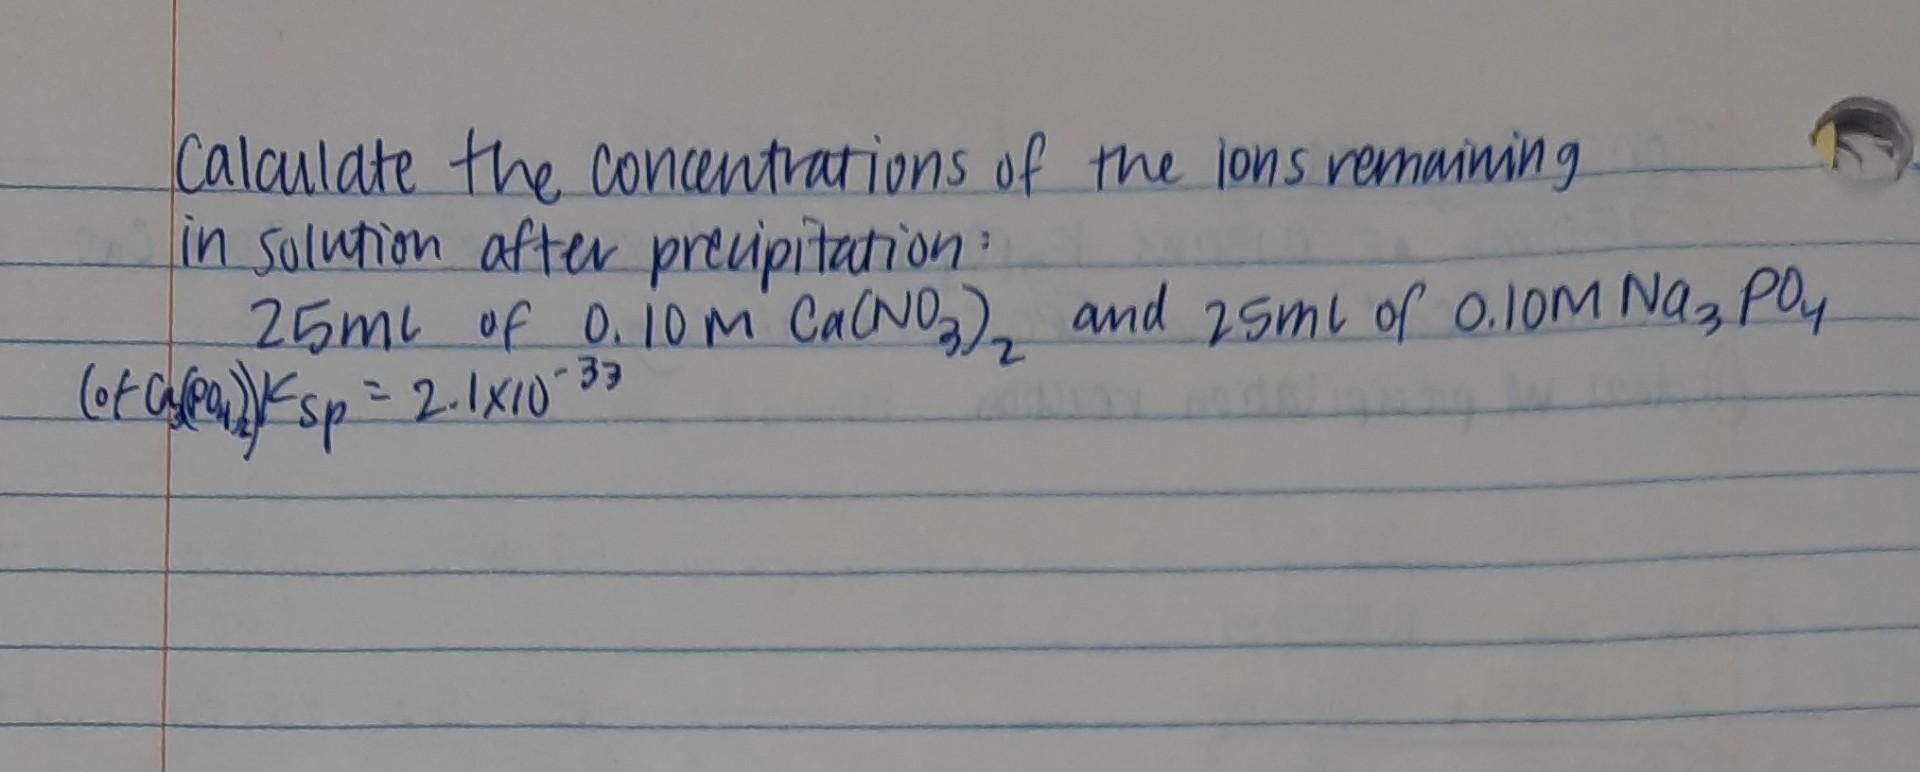 Calculate the concentrations of the ions remaining
in solution after precipitation:
25mL of 0.10M Ca(NO3)2 and 25mL of 0.10M Na3PO4
(of Ca3(PO4)2) Ksp = 2.1x10^-33